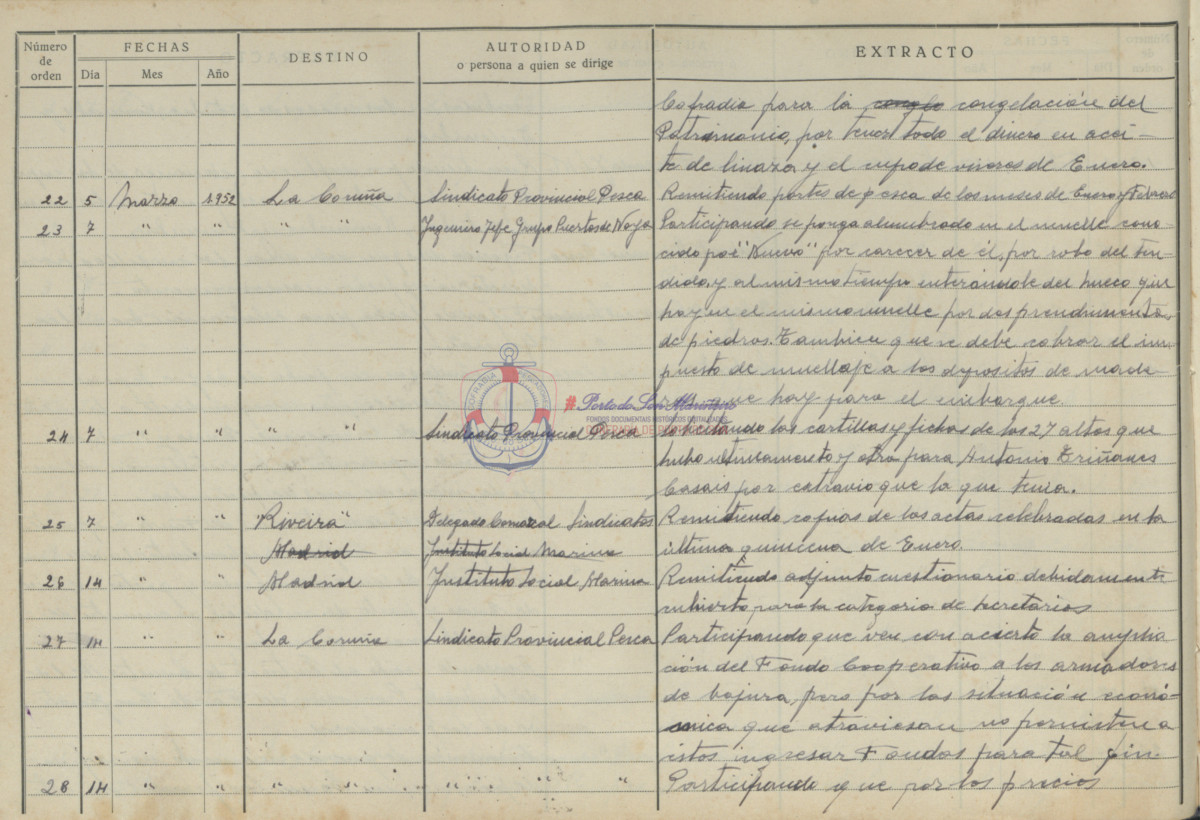 Número de orden FECHAS DESTINO AUTORIDAD o persona a quien se dirige EXTRACTO
Día Mes Año
Cofradia para la congelación del
Patrimonio, por tener todo el dinero en acei-
te de linaza y el cupo de viveres de Enero.
22 5 Marzo 1.952 La Coruña Sindicato Provincial Pesca Remitiendo partes de pesca de los meses de Enero y Febrero
23 7 " " " " Ingeniero Jefe Grupo Puertos de Noya Participando se ponga alumbrado en el muelle cono-
cido por "Nuevo" por carecer de él, por robo del ten-
dido, y al mismo tiempo enterándole del hueco que
hay en el mismo muelle por desprendimiento
de piedras. Tambien que se debe cobrar el im-
puesto de muellaje a los depositos de made-
que hay para el embarque.
#Porto do Son Marinheiro
FONDOS DOCUMENTAIS HISTÓRICOS DIXITALIZADOS
24 7 " " " " Sindicato Provincial Pesca Solicitando las cartillas y fichas de los 27 altas que
hubo ultimamente y otra para Antonio Triñanes
Casais por extravio que la que tenia.
25 7 " " "Riveira" Delegado Comarcal Sindicatos Remitiendo copias de las actas celebradas en la
Madrid Instituto Social Marina última quincena de Enero.
26 14 " " Madrid Instituto Social Marina Remitiendo adjunto cuestionario debidamente
cubierto para la categoria de Secretarios
27 14 " " La Coruña Sindicato Provincial Pesca Participando que ven con acierto la amplia
ción del Fondo Cooperativo a los armadores
de bajura, pero por las situación econó-
mica que atraviesan no permiten a
estos ingresar Fondos para tal fin.
28 14 " " " " " " " Participando que por los precios